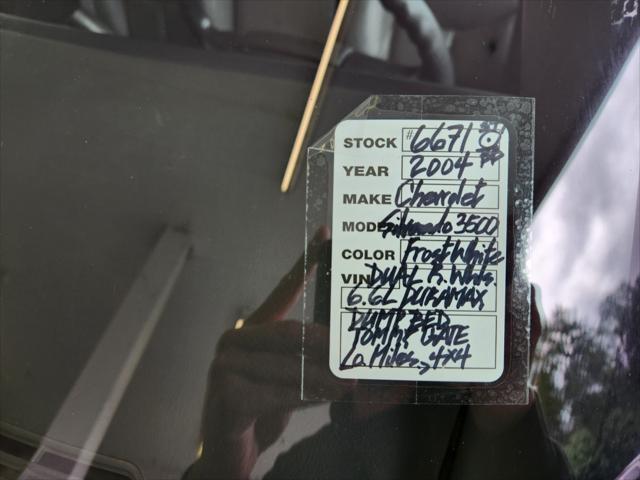 STOCK #6671
YEAR 2004
MAKE Chevrolet
MODEL Silverado 3500
COLOR Frost White
VIN DUAL R. Whls.
6.6L DURAMAX
DUMP BED
TOMMY GATE
Lo Miles, 4x4